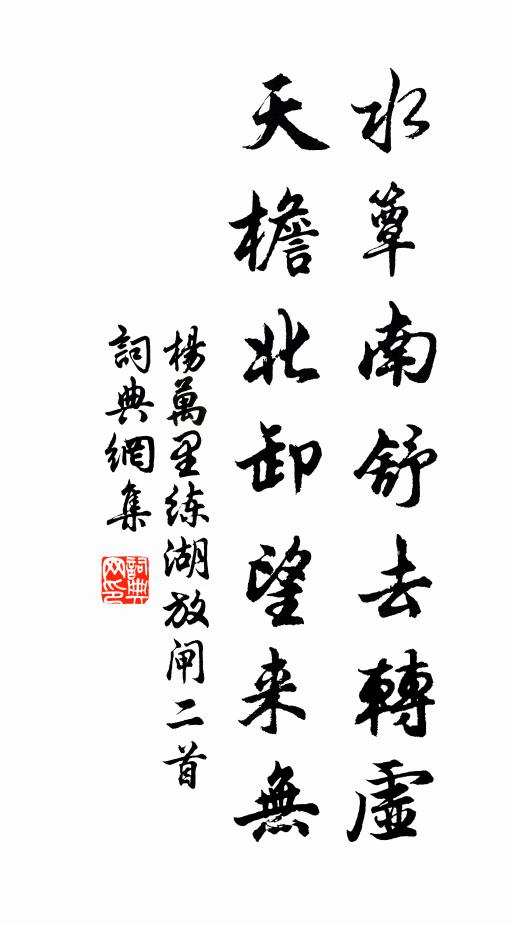 水簟南舒去轉虛
天檐北卸望来無
楊萬里练湖放闸二首
詞典網集
詞典网印